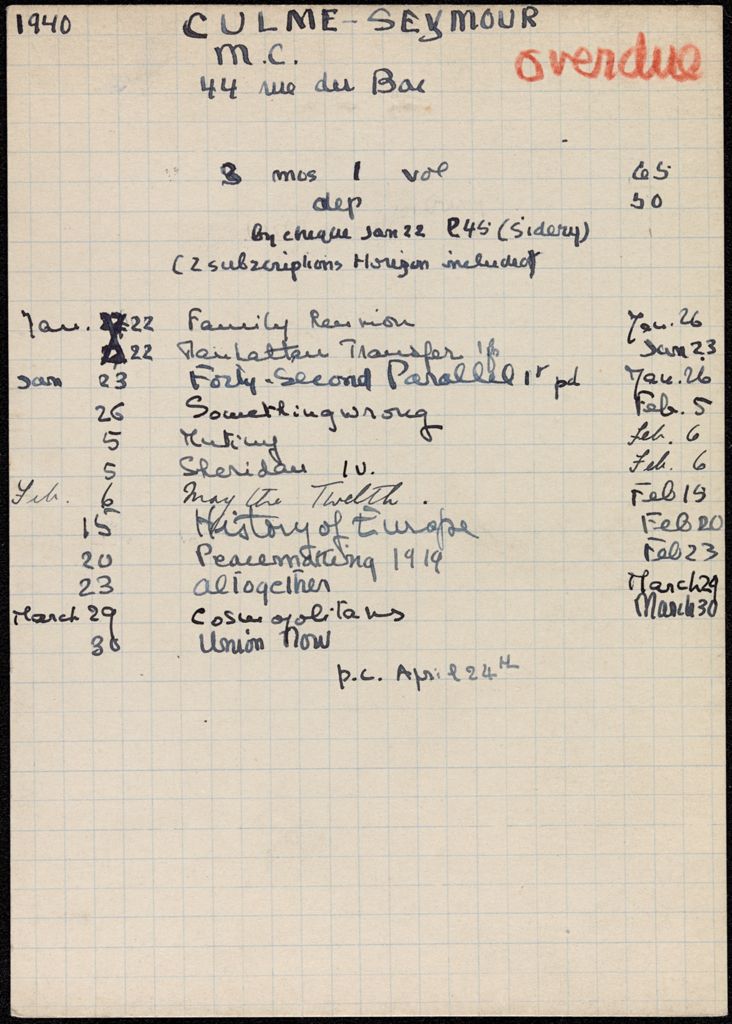 1940 CULME-SEYMOUR
M.C. overdue
44 rue du Bac
3 mos 1 vol 65
dep 50
by cheque Jan 22 £45 (Sidery)
(2 subscriptions Horizon included)
Jan. 22 Family Reunion Jan. 26
22 Manhatten Transfer 1f Jan 23
Jan 23 Forty-Second Parallel 1f pd Jan. 26
26 Something wrong Feb. 5
5 Mutiny Feb. 6
5 Sheridan 1v. Feb. 6
Feb. 6 May the Twelth. Feb 15
15 History of Europe Feb 20
20 Peacemaking 1919 Feb 23
23 altogether March 29
March 29 Cosmopolitans March 30
30 Union Now
p.c. April 24th